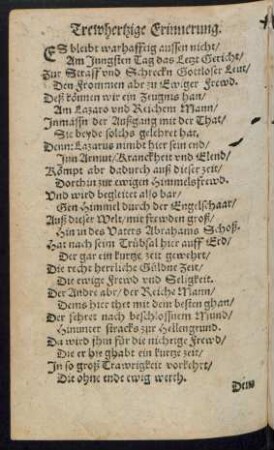 Trewhertzige Erinnerung.
ES bleibt warhafftig aussen nicht/
Am Jungsten Tag das Letzt Gericht/
Zur Straff vnd Schreckn Gottloser Leut/
Den Frommen abr zu Ewiger Frewd.
Deß können wir ein Zeugnus han/
Am Lazaro vnd Reichem Mann/
Inmassn der Außgang mit der That/
Sie beyde solchs gelehret hat.
Denn Lazarus nimbt hier sein end/
Inn Armut/ Kranckheit vnd Elend/
Kömpt abr dadurch auß dieser zeit/
Dorthin zur ewigen Himmelsfrewd.
Vnd wird begleitet also bar/
Gen Himmel durch der Engelschaar/
Auß dieser Welt/ mit frewden groß/
Hin in des Vaters Abrahams Schoß.
Hat nach seim Trübsal hier auff Erd/
Der gar ein kurtze zeit gewehrt/
Die recht herrliche Güldne Zeit/
Die ewige Frewd vnd Seligkeit.
Der Andre abr/ der Reiche Mann/
Dems hier thet mit dem besten ghan/
Der fehret nach beschlossnem Mund/
Hinunter stracks zur Hellengrund.
Da wird jhm für die nichtige Frewd/
Die er hie ghabt ein kurtze zeit/
In so groß Trawrigkeit vorkehrt/
Die ohne ende ewig werth.
Dem